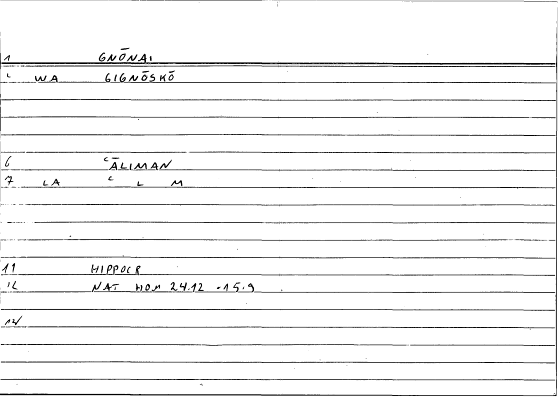 1 GNŌNAI
2 WA GIGNŌSKŌ
6 ʿĀLIMAN
7 LA ʿ L M
11 HIPPOCR
12 NAT HOM 24.12 -15.9